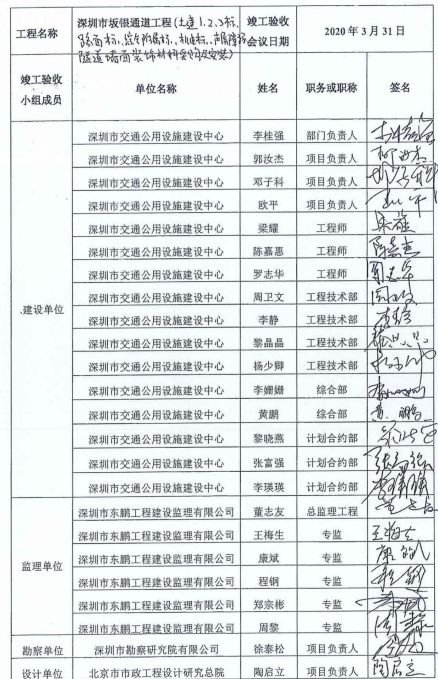 工程名称 深圳市坂银通道工程(土建1.2.3标、 竣工验收会议日期 2020年3月31日
路面标、综合附属标、机电标、声屏障标
隧道墙面装饰材料采购及安装)
竣工验收小组成员 单位名称 姓名 职务或职称 签名
.建设单位
深圳市交通公用设施建设中心 李桂强 部门负责人
深圳市交通公用设施建设中心 郭汝杰 项目负责人
深圳市交通公用设施建设中心 邓子科 项目负责人
深圳市交通公用设施建设中心 欧平 项目负责人
深圳市交通公用设施建设中心 梁耀 工程师
深圳市交通公用设施建设中心 陈嘉惠 工程师
深圳市交通公用设施建设中心 罗志华 工程师
深圳市交通公用设施建设中心 周卫文 工程技术部
深圳市交通公用设施建设中心 李静 工程技术部
深圳市交通公用设施建设中心 黎晶晶 工程技术部
深圳市交通公用设施建设中心 杨少卿 工程技术部
深圳市交通公用设施建设中心 李姗姗 综合部
深圳市交通公用设施建设中心 黄鹏 综合部 黄鹏
深圳市交通公用设施建设中心 黎晓燕 计划合约部
深圳市交通公用设施建设中心 张富强 计划合约部
深圳市交通公用设施建设中心 李瑛瑛 计划合约部
监理单位
深圳市东鹏工程建设监理有限公司 董志友 总监理工程
深圳市东鹏工程建设监理有限公司 王梅生 专监 王梅生
深圳市东鹏工程建设监理有限公司 康斌 专监
深圳市东鹏工程建设监理有限公司 程钢 专监 程钢
深圳市东鹏工程建设监理有限公司 郑宗彬 专监
深圳市东鹏工程建设监理有限公司 周黎 专监
勘察单位 深圳市勘察研究院有限公司 徐泰松 项目负责人
设计单位 北京市市政工程设计研究总院 陶启立 项目负责人 陶启立